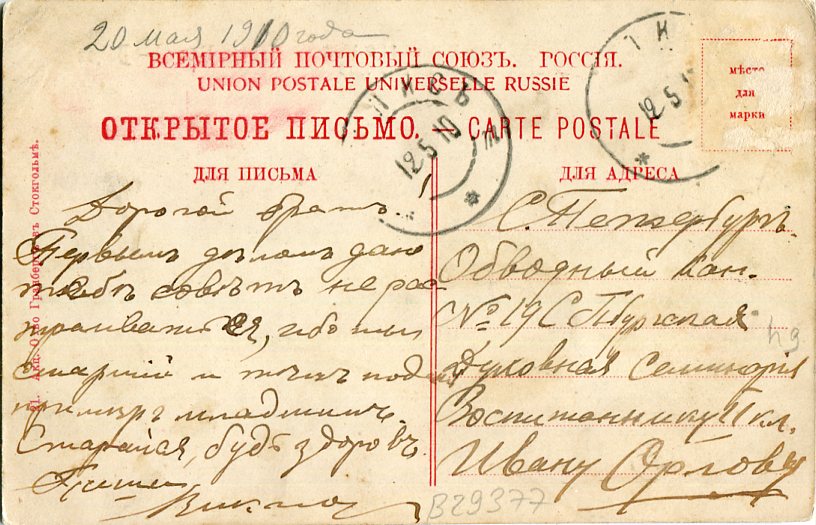 20 мая 1910 года
ВСЕМІРНЫЙ ПОЧТОВЫЙ СОЮЗЪ. РОССІЯ.
UNION POSTALE UNIVERSELLE RUSSIE
ОТКРЫТОЕ ПИСЬМО. — CARTE POSTALE
мѣсто
для
марки
12 5 10
12 5
ДЛЯ ПИСЬМА
ДЛЯ АДРЕСА
Дорогой братъ.
Первымъ дѣломъ даю
тебѣ совѣтъ не рас
траиваться, ибо ты
старшій и тѣмъ подаешь
примѣръ младшимъ.
Старайся, будь здоровъ.
Пиши
С. Петербургъ.
Обводный кан.
№ 19 С Пбургская
Духовная Семинарія
Воспитаннику II кл.
Ивану Орлову
49
В29377
Акц. О-во Гранбергъ въ Стокгольмѣ.